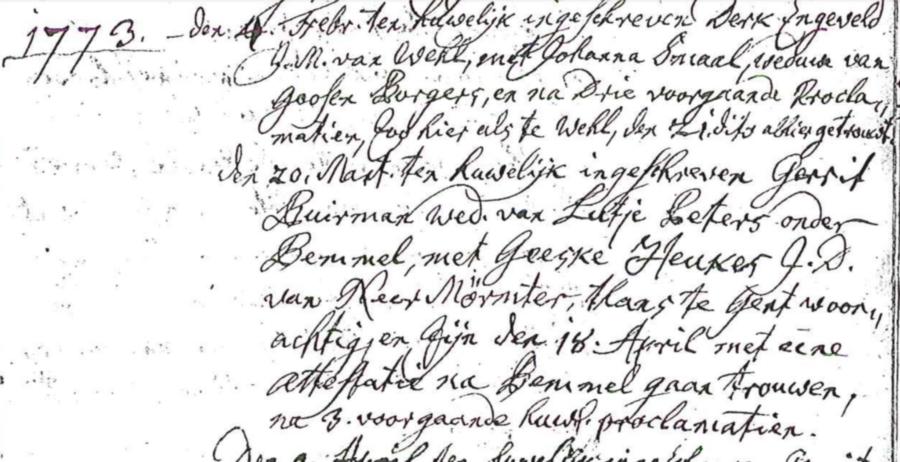 1773. – den 4. Febr. ten huwelijk ingeschreven Derk Engeveld
J.M. van Wehl, met Johanna Smaal, weduw van
Goosen Borgers, en na Drie voorgaande Procla„
matien, Zoo hier als te Wehl, den 21 dito alhier getrouwt.
den 20. Mart. ten huwelijk ingeschreven Gerrit
Buirman wed. van Lutje Peters onder
Bemmel, met Geeske Heukes J.D.
van Neer Mörmter, thans te Gent woon„
achtig, en zijn den 18. April met eene
attestatie na Bemmel gaan trouwen,
na 3. voorgaande huwl. proclamatien.
Den April ten huwelijk